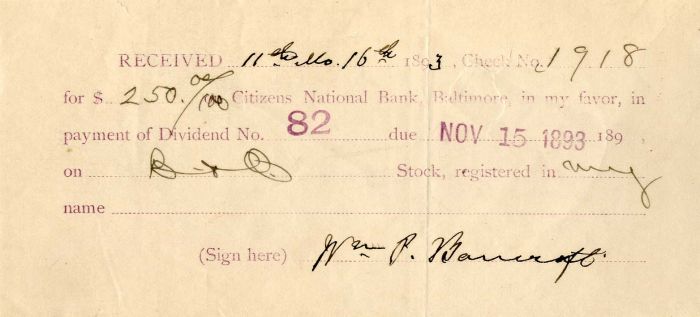 RECEIVED 11th Mo. 16th 1893, Check No. 1918
for $ 250.00/100 on Citizens National Bank, Baltimore, in my favor, in
payment of Dividend No. 82 due NOV 15 1893 189
on B & O. Stock, registered in my
name
(Sign here) Wm P. Bancroft.